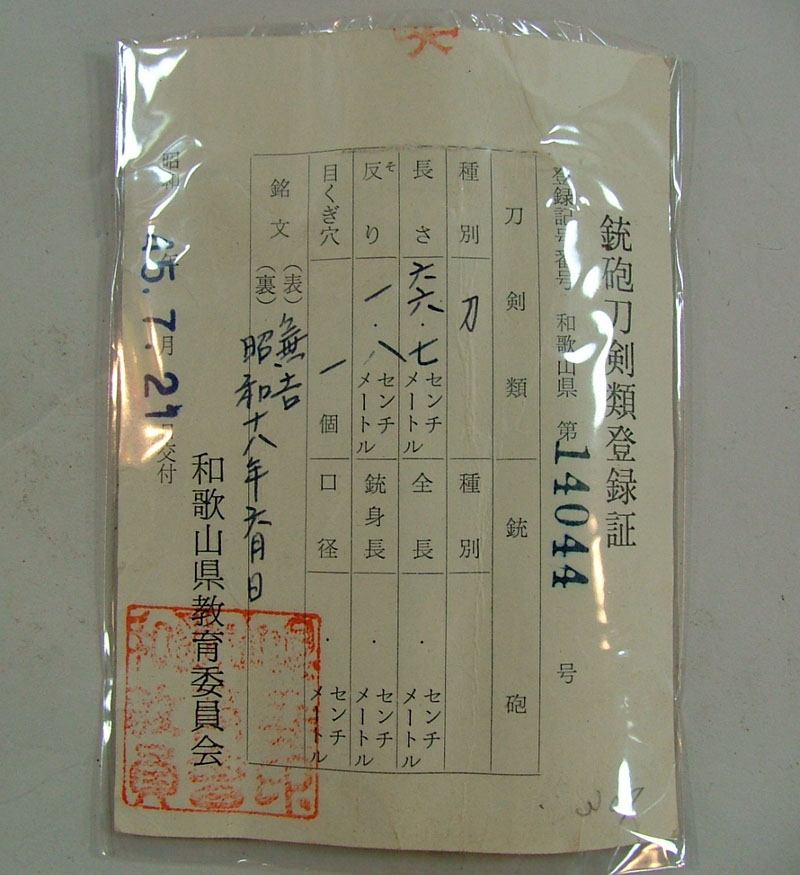 銃砲刀剣類登録証
登録記号番号 和歌山県 第14044号
刀剣類 銃砲
種別 刀 種別
長さ 六六・七センチメートル 全長 ・センチメートル
反り 一・八センチメートル 銃身長 ・センチメートル
そ
目くぎ穴 一個 口径 ・センチメートル
銘文
(表) 兼吉
(裏) 昭和十八年六月日
昭和45年7月21日交付
和歌山県教育委員会